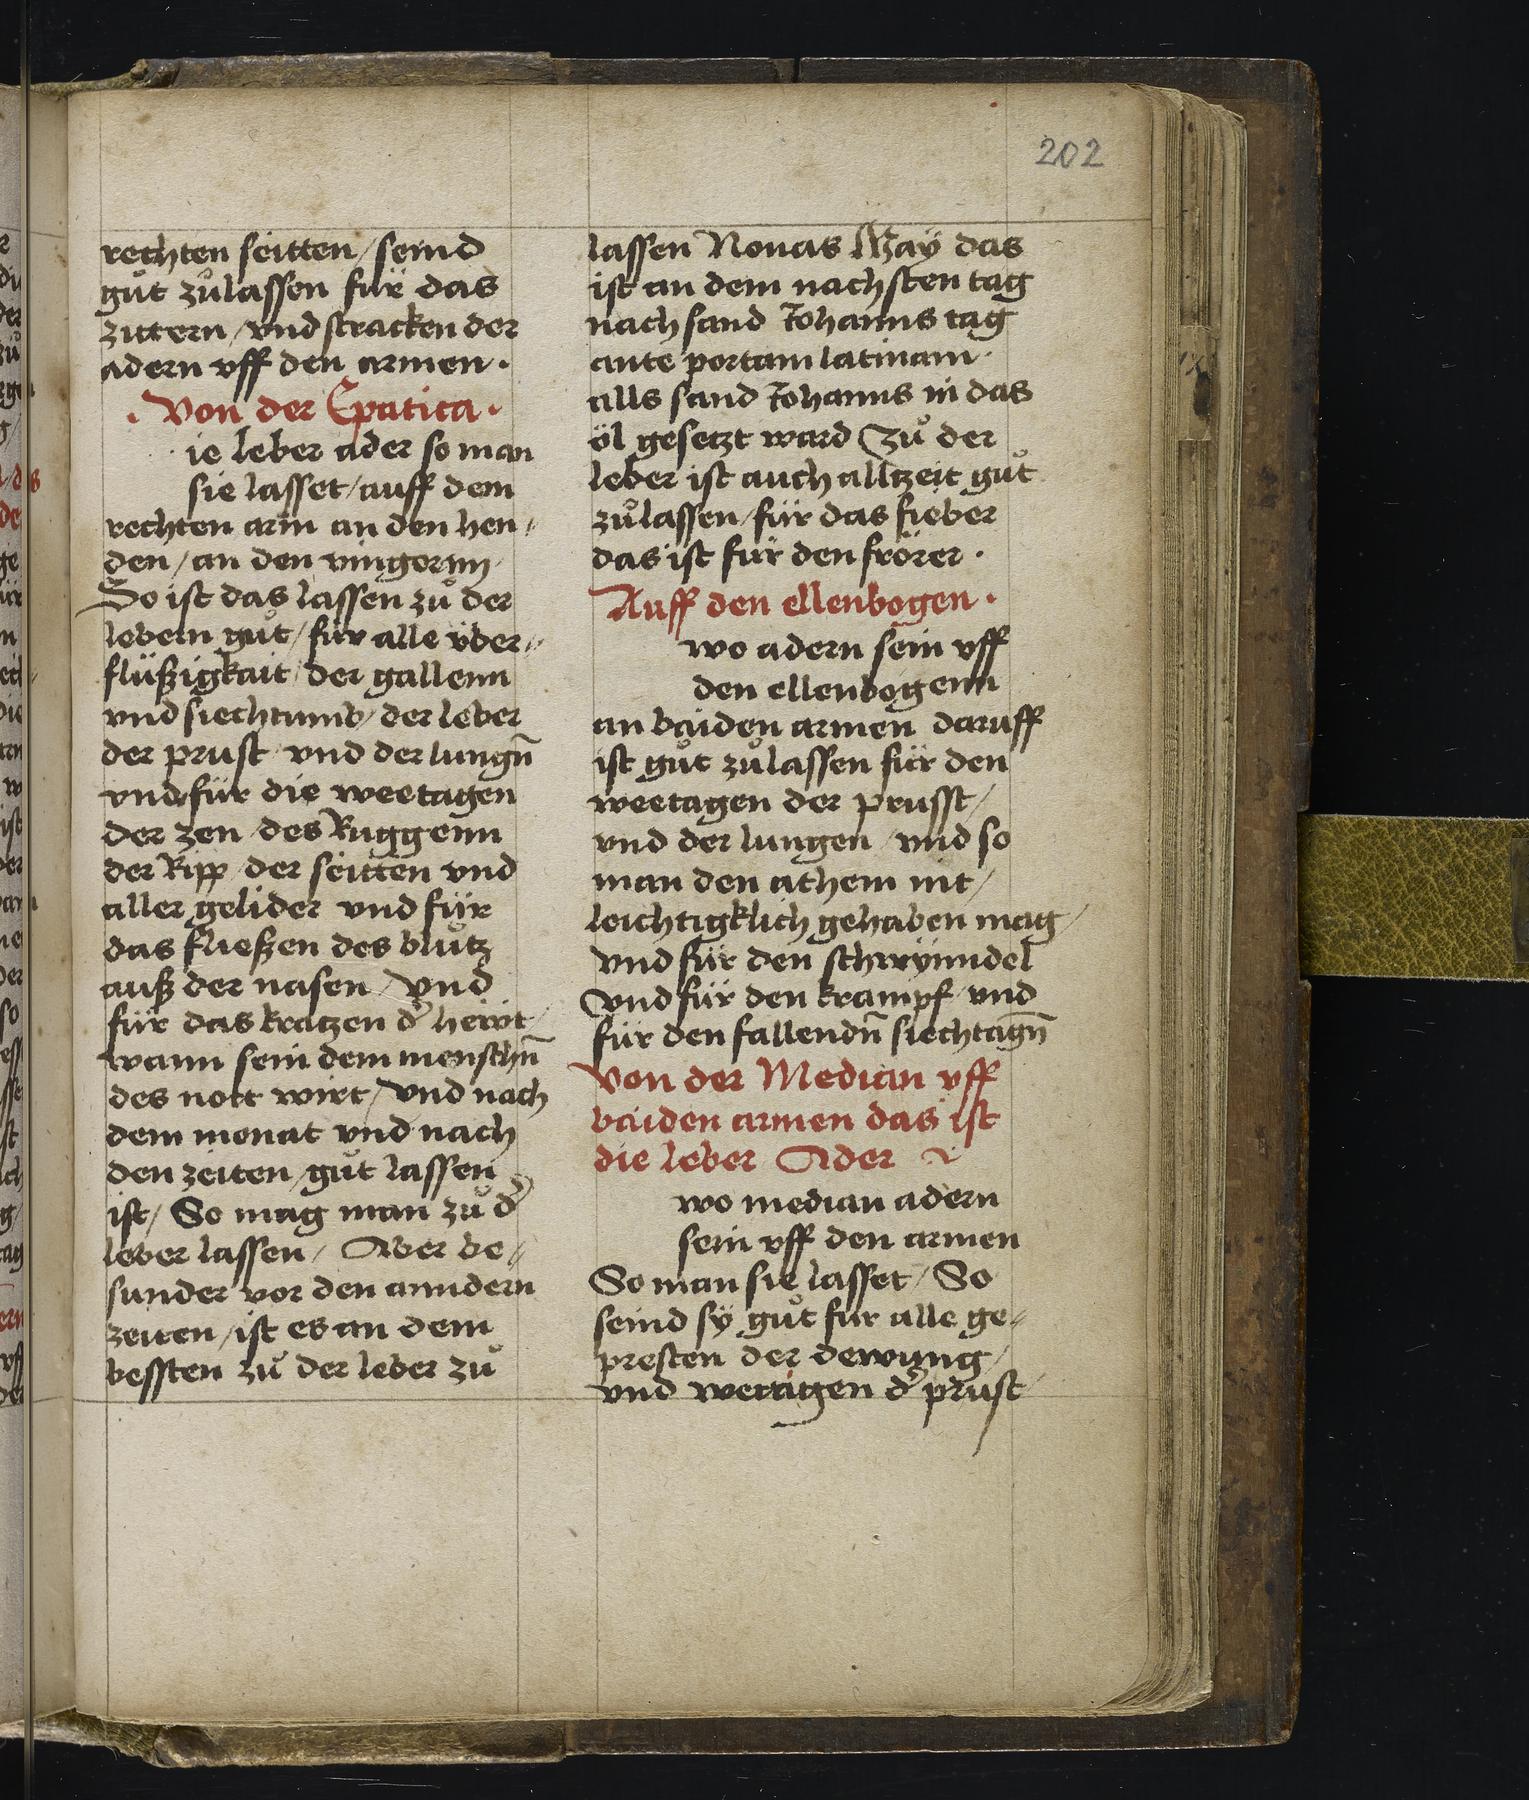 202
rechten seitten / seind
gůt zůlassen für das
zittern / vnd stracken der
adern vff den armen ·
· Von der Epatica ·
ie leber ader so man
sie lasset / auff dem
rechten arm an den hen //
den / an den vingernn
So ist das lassen zů der
lebern gůt / für alle über //
flüßigkait / der gallenn
vnd siechtumb / der leber
der prust vnd der lungñ
vnd für die weetagen
der zen / des Ruggenn
der Ripp / der seitten vnd
aller gelider vnd für
das fließen des blůtz
auß der nasen / vnd
für das kratzen d' hewt /
wann sein dem menschñ
des nott wirt / vnd nach
dem monat vnd nach
den zeiten / gůt lassen
ist / So mag man zů d'
leber lassen / Aber be //
sunder vor den anndern
zeiten / ist es an dem
bessten zů der leber zů
lassen Nonas Maÿ das
ist an dem nachsten tag
nach sand Johanns tag
ante portam latinam ·
alls sand Johanns in das
öl gesetzt ward Zů der
leber ist auch allzeit gůt
zůlassen / für das fieber
das ist für den frörer ·
Auff den ellenbogen ·
wo adern sein vff
den ellenbogenn
an baiden armen daruff
ist gůt zůlassen für den
weetagen der prusst /
vnd der lungen / vnd so
man den athem nit /
leichtigklich gehaben mag /
vnd für den schwÿnndel
vnd für den krampf / vnd
für den fallendñ siechtagñ
Von der Median vff
baiden armen das ist
die leber Ader
wo median adern
sein vff den armen
So man sie lasset / So
seind sÿ gůt für alle ge //
presten der dewung /
vnd wettagen d' prust /